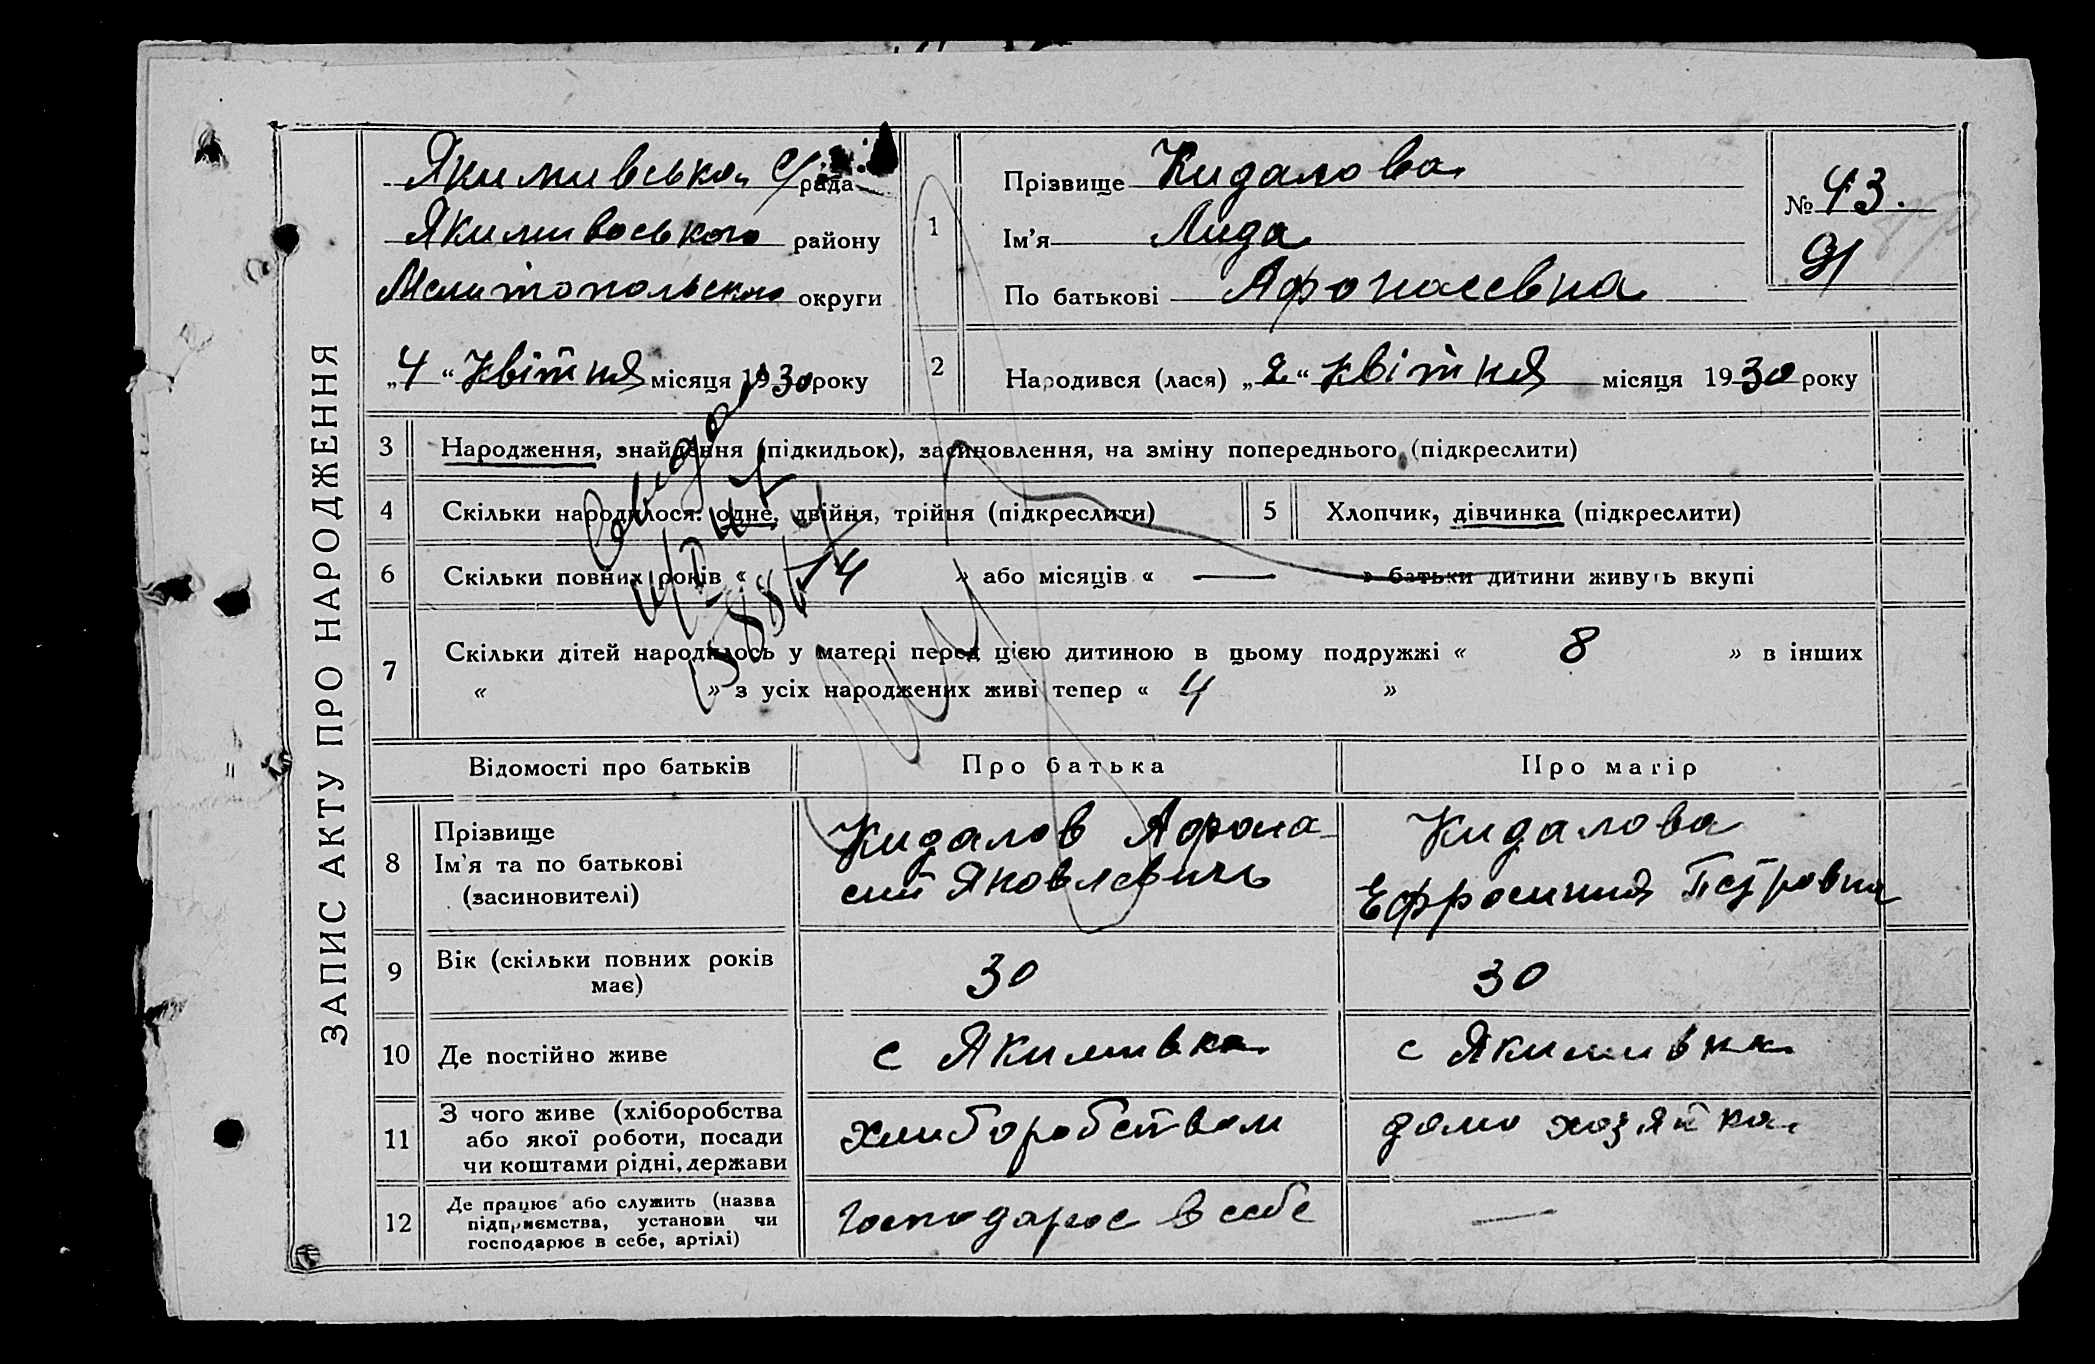 ЗАПИС АКТУ ПРО НАРОДЖЕННЯ
Якимивська с/рада
Якимивоського району
Мелитопольского округи
„4“ квітня місяця 1930 року
1
Прізвище Кидалова
Ім'я Лида
По батькові Афонасевна
№ 43.
91
2
Народився (лася) „2“ квітня місяця 1930 року
3 Народження, знайдення (підкидьок), засиновлення, на зміну попереднього (підкреслити)
4 Скільки народилося: одне, двійня, трійня (підкреслити) 5 Хлопчик, дівчинка (підкреслити)
6 Скільки повних років « 14 » або місяців « — » батьки дитини живуть вкупі
7 Скільки дітей народилось у матері перед цією дитиною в цьому подружжі « 8 » в інших
« » з усіх народжених живі тепер « 4 »
Відомості про батьків Про батька Про матір
8 Прізвище
Ім'я та по батькові
(засиновителі)
Кидалов Афона
сий Яковлевичь
Кидалова
Ефросиния Петровна
9 Вік (скільки повних років
має)
30 30
10 Де постійно живе с Якимивка с Якимивка
11 З чого живе (хліборобства
або якої роботи, посади
чи коштами рідні, держави
хлиборобством домо хозяйка
12 Де працює або служить (назва
підприємства, установи чи
господарює в себе, артілі)
господарює в себе —